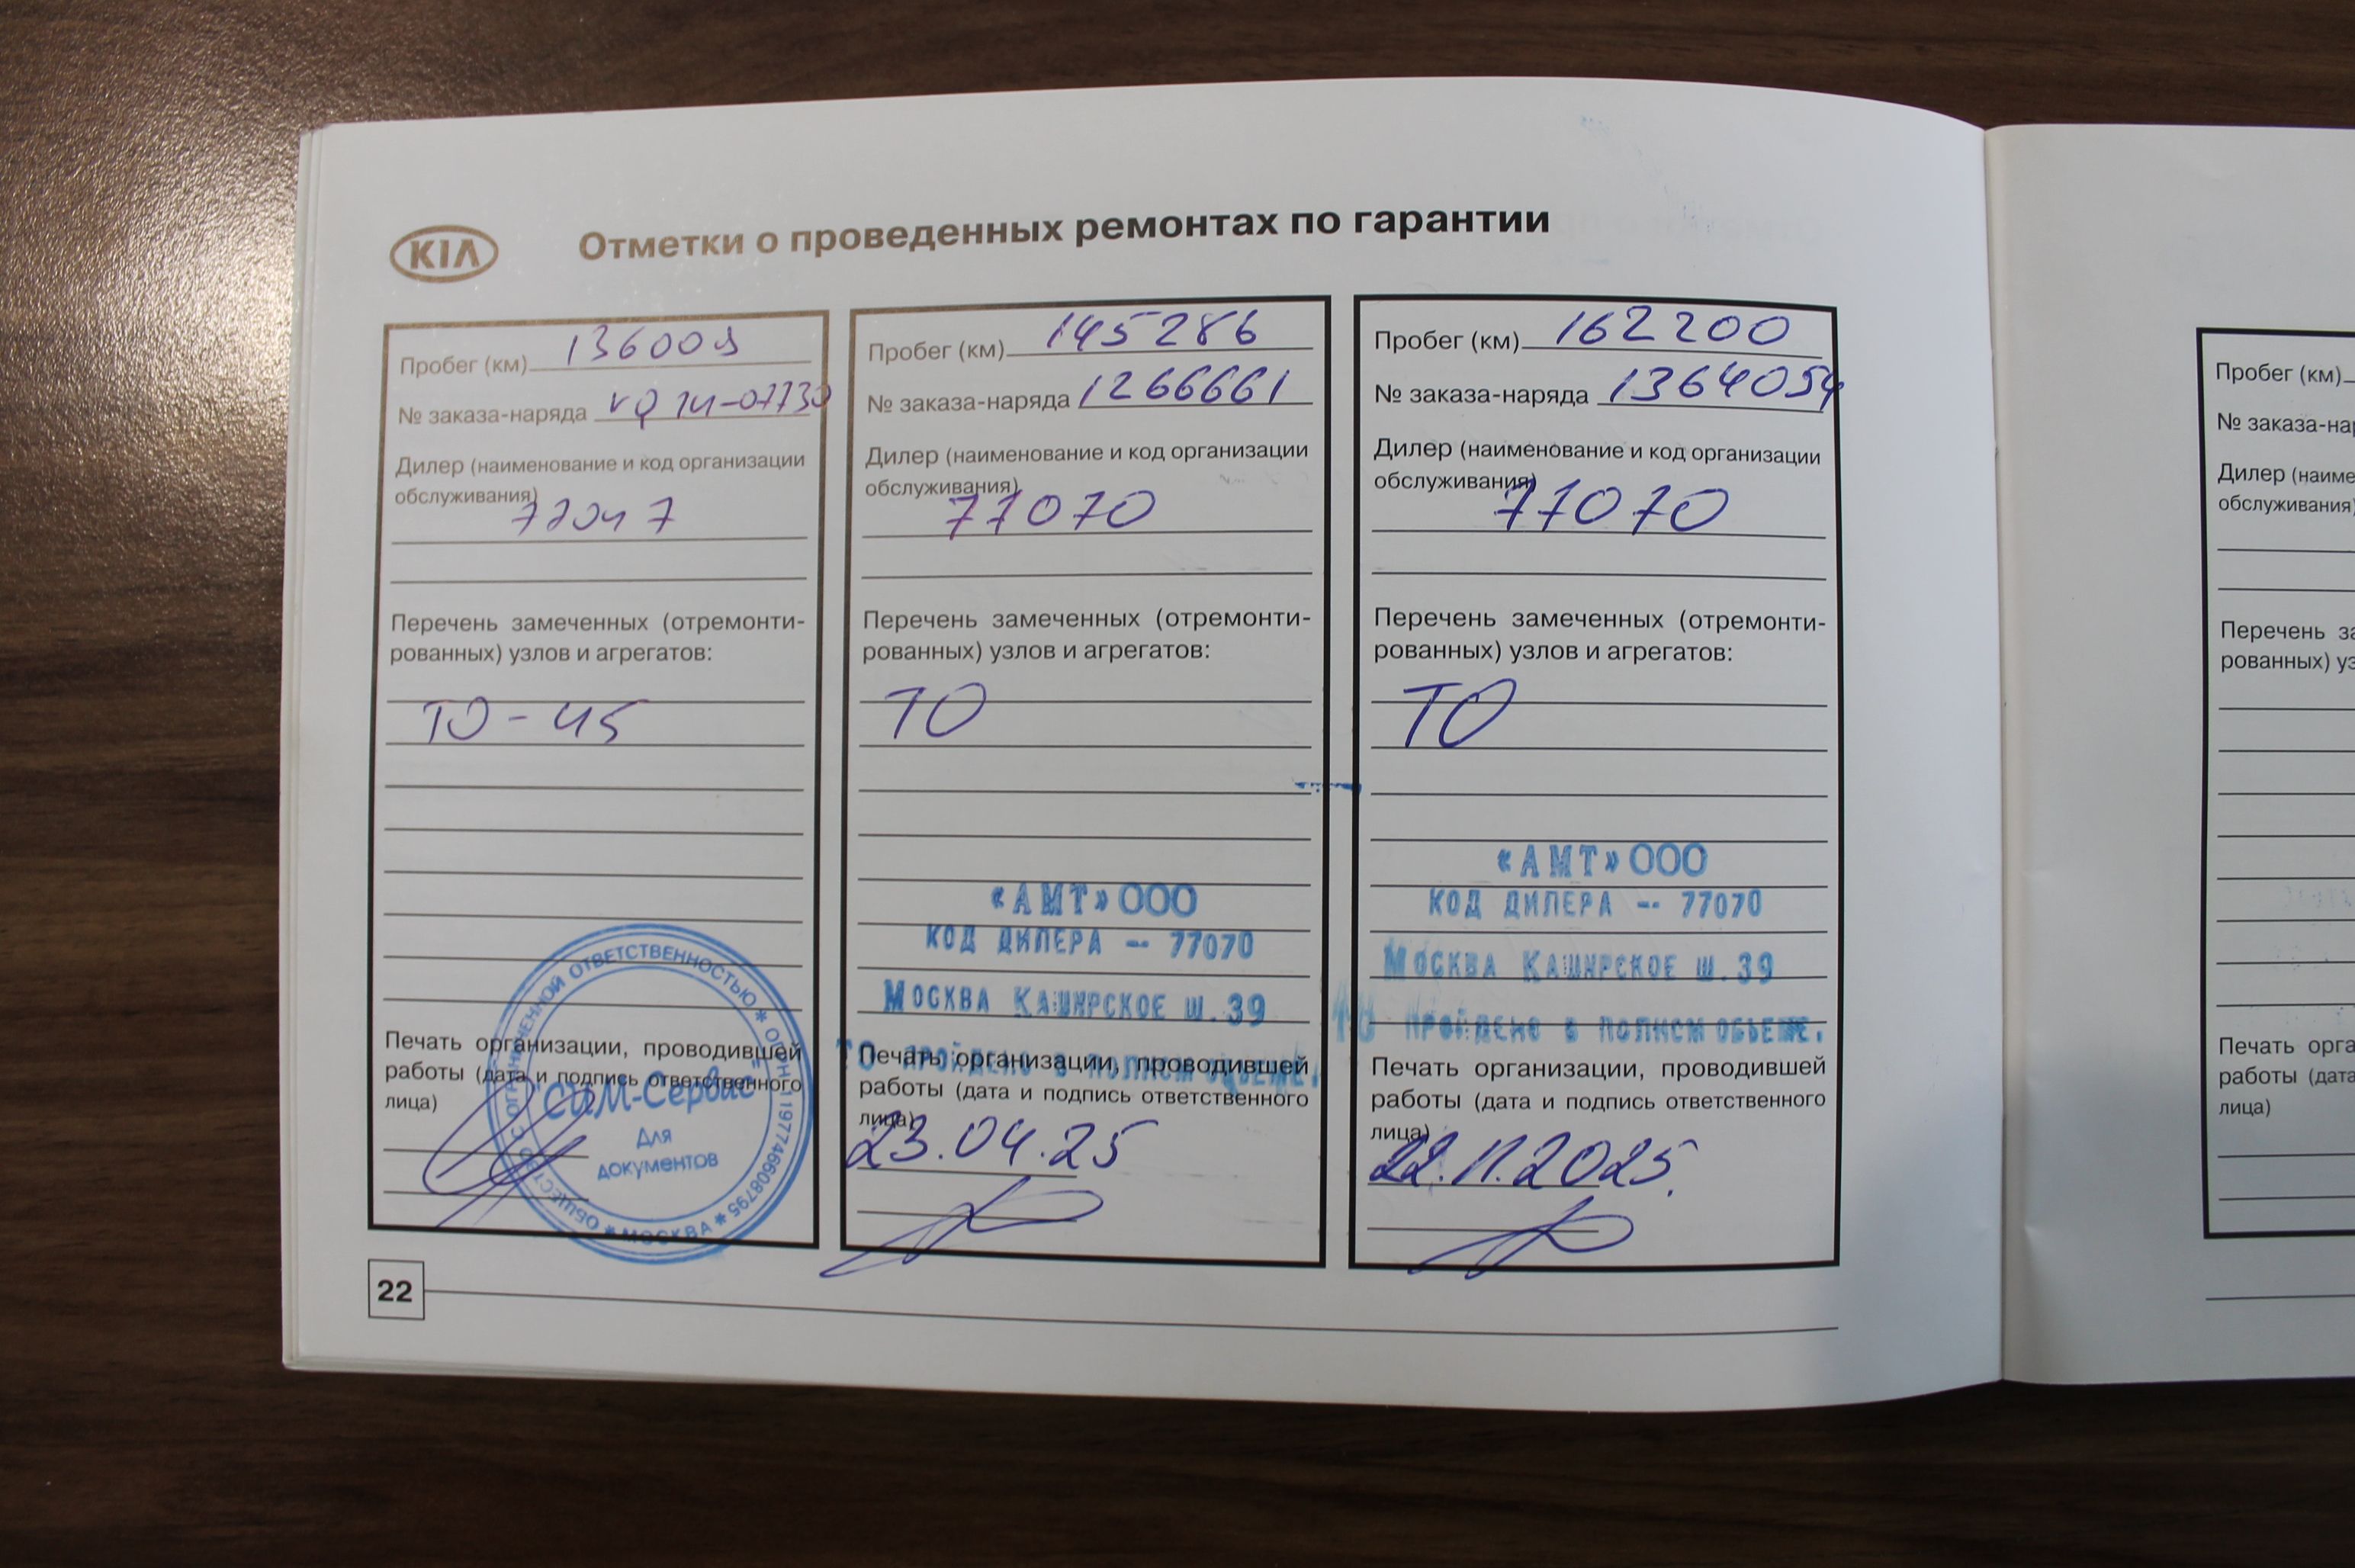 KIA
Отметки о проведенных ремонтах по гарантии
Пробег (км) 136009
№ заказа-наряда
Дилер (наименование и код организации
обслуживания)
77047
Перечень замеченных (отремонти-
рованных) узлов и агрегатов:
ТО - 45
Печать организации, проводившей
работы (дата и подпись ответственного
лица)
ОБЩЕСТВО С ОГРАНИЧЕННОЙ ОТВЕТСТВЕННОСТЬЮ * ОГРН 1197746608795 * МОСКВА *
"СИМ-Сервис"
Для
документов
Пробег (км) 145286
№ заказа-наряда 1266661
Дилер (наименование и код организации
обслуживания)
77070
Перечень замеченных (отремонти-
рованных) узлов и агрегатов:
ТО
«АМТ» ООО
КОД ДИЛЕРА -- 77070
МОСКВА КАШИРСКОЕ Ш. 39
ТО ПРОЙДЕНО В ПОЛНОМ ОБЬЕМЕ.
Печать организации, проводившей
работы (дата и подпись ответственного
лица)
23.04.25
Пробег (км) 162200
№ заказа-наряда 1364054
Дилер (наименование и код организации
обслуживания)
77070
Перечень замеченных (отремонти-
рованных) узлов и агрегатов:
ТО
«АМТ» ООО
КОД ДИЛЕРА -- 77070
МОСКВА КАШИРСКОЕ Ш. 39
ТО ПРОЙДЕНО В ПОЛНОМ ОБЬЕМЕ.
Печать организации, проводившей
работы (дата и подпись ответственного
лица)
22.11.2025.
22
Пробег (км)
№ заказа-на
Дилер (наиме
обслуживания)
Перечень за
рованных) уз
Печать орга
работы (дата
лица)